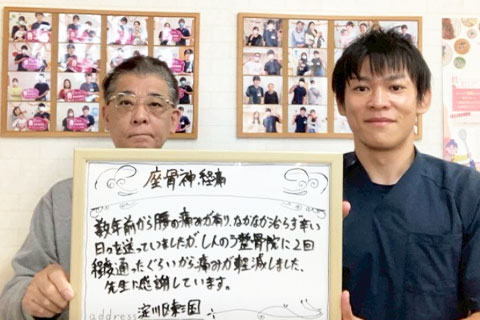 座骨神経痛
数年前から腰の痛みが有り、なかなか治らず辛い
日々を送っていましたが、しんのう整骨院に2回
程度通ったぐらいから痛みが軽減しました、
先生に感謝しています。
address 淀川区東三国